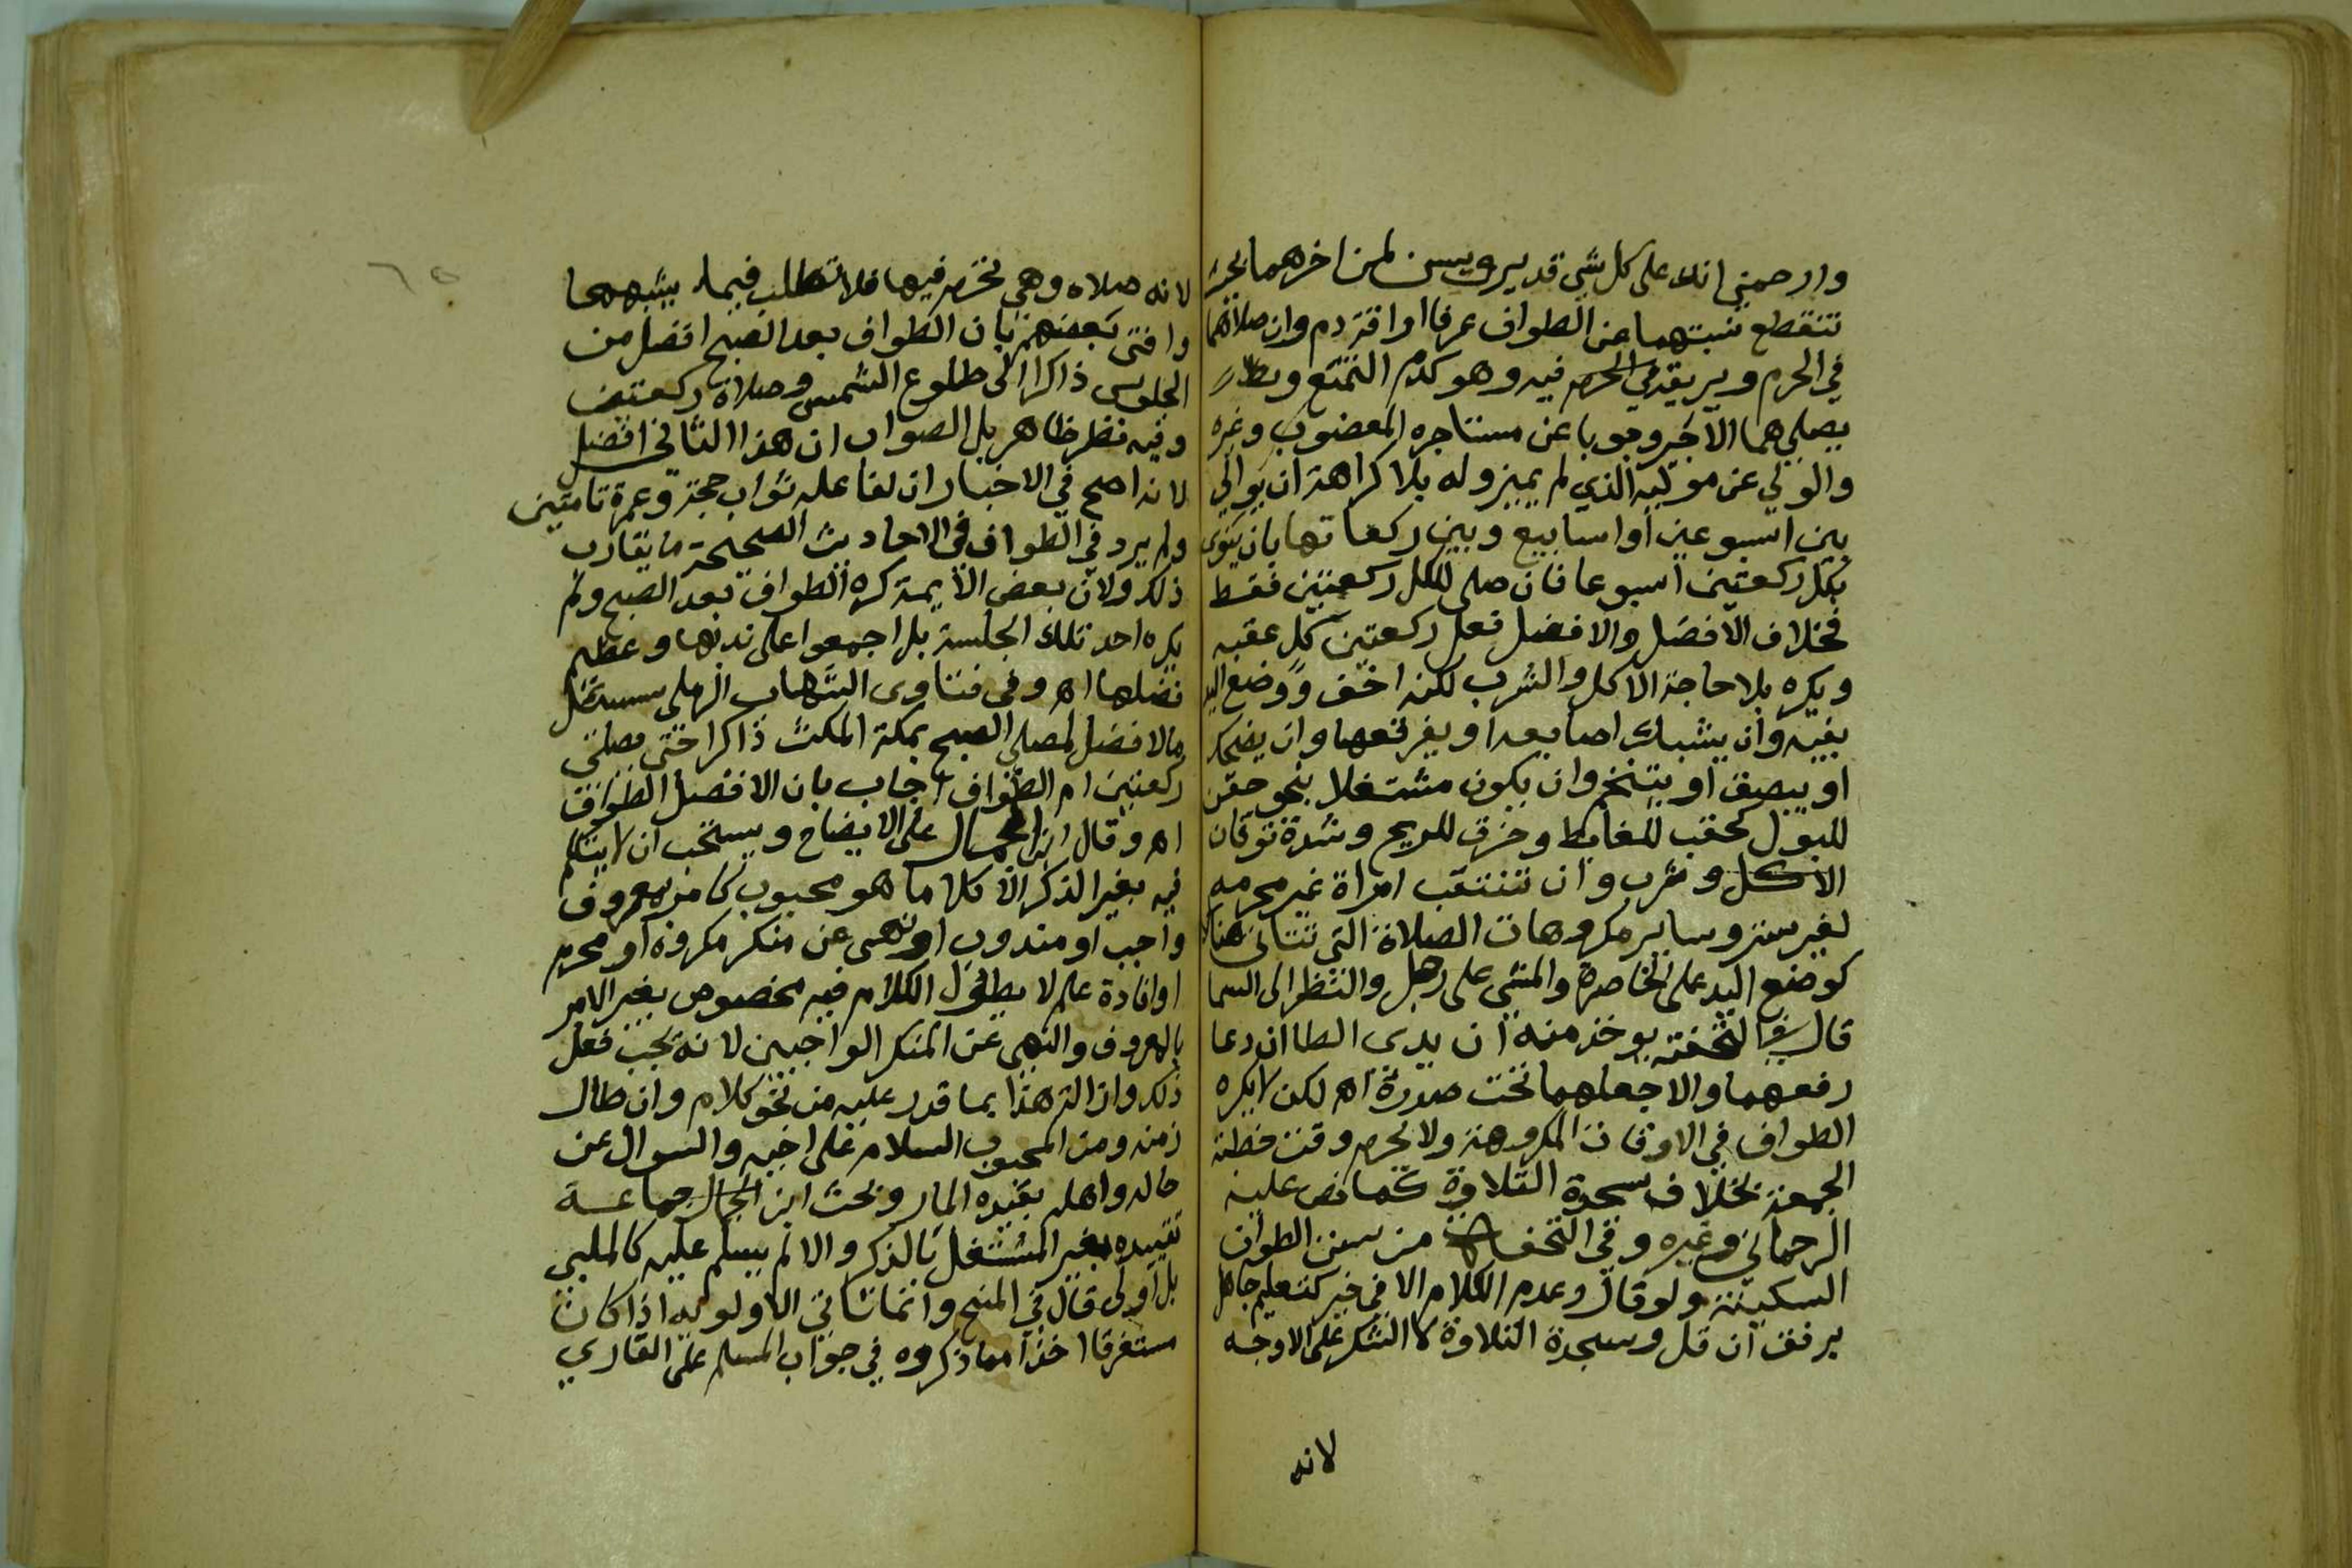 وارحمني انك على كل شي قدير ويسن لمن اخرهما بحيث
تنقطع نسبتهما عن الطواف عرفا اراقة دم وان صلاهما
في الحرم ويريقه في الحرم فيه وهو كدم التمتع
يصليهما الاجير وجوبا عن مستاجره المعضوب وغيره
والولي عن موليه الذي لم يميز وله بلا كراهة ان يوالي
بين اسبوعين او اسابيع وبين ركعاتها بان ينوي
بكل ركعتين اسبوعا فان صلى للكل ركعتين فقط
فخلاف الافضل والافضل فعل ركعتين كل عقبه
ويكره بلا حاجة الاكل والشرب لكنه اخف ووضع اليد
بفيه وان يشبك اصابعه او يفرقعها وان يضحك
او يبصق او يتنخم وان يكون مشتغلا بنحو حقن
للبول كحقب للغايط وحزق للريح وشدة توقان
الاكل وشرب وان تنتقب امراة غير محرمه
لغير ستر وساير مكروهات الصلاة التي تتاتى هنا
كوضع اليد على الخاصرة والمشي على رجل والنظر الى السما
قال في التحفة يوخذ منه ان يدي الطا ان دعا
رفعهما والا جعلهما تحت صدره اه لكن لا يكره
الطواف في الاوقات المكروهة ولا يحرم وقت خطبة
الجمعة بخلاف سجدة التلاوة كما نص عليه
الرحماني وغيره وفي التحفة من سنن الطواف
السكينة ولو قال وعدم الكلام الا في خير كتعليم جاهل
برفق ان قل وسجدة التلاوة لا الشكر على الاوجه
لانه
٦٥
لانه صلاه وهي تحرم فيها فلا تطلب فيما يشبهها
وافتى بعضهم بان الطواف بعد الصبح افضل من
الجلوس ذاكرا الى طلوع الشمس وصلاة ركعتين
وفيه نظر ظاهر بل الصواب ان هذا الثاني افضل
لانه اصح في الاخبار ان لفاعله ثواب حجة وعمرة تامتين
ولم يرد في الطواف في الاحاديث الصحيحة ما يقارب
ذلك ولان بعض الايمة كره الطواف بعد الصبح ولم
يكره احد تلك الجلسة بل اجمعوا على ندبها وعظيم
فضلها اه وفي فتاوى الشهاب الرملي سئل هل
الافضل لمصلي الصبح بمكة المكث ذاكرا حتى يصلي
ركعتين ام الطواف اجاب بان الافضل الطواف
اه وقال ابن الجمال على الايضاح ويستحب ان لا يتكلم
فيه بغير الذكر الا كلاما هو محبوب كامر بمعروف
واجب او مندوب او نهي عن منكر مكروه او محرم
او افادة علم لا يطول الكلام فيه مخصوص بغير الامر
بالمعروف والنهي عن المنكر الواجبين لانه يجب فعل
ذلك وازالة هذا بما قدر عليه من نحو كلام وان طال
زمنه ومن المحبوب السلام على اخيه والسوال عن
حاله واهله بقيده المار وبحث ابن الجمال جماعة
تقييده بغير المشتغل بالذكر والا لم يسلم عليه كالملبي
بل اولى قال في المنح وانما تتاتى الاولويه اذا كان
مستغرقا اخذا مما ذكروه في جواب المسلم على القاري